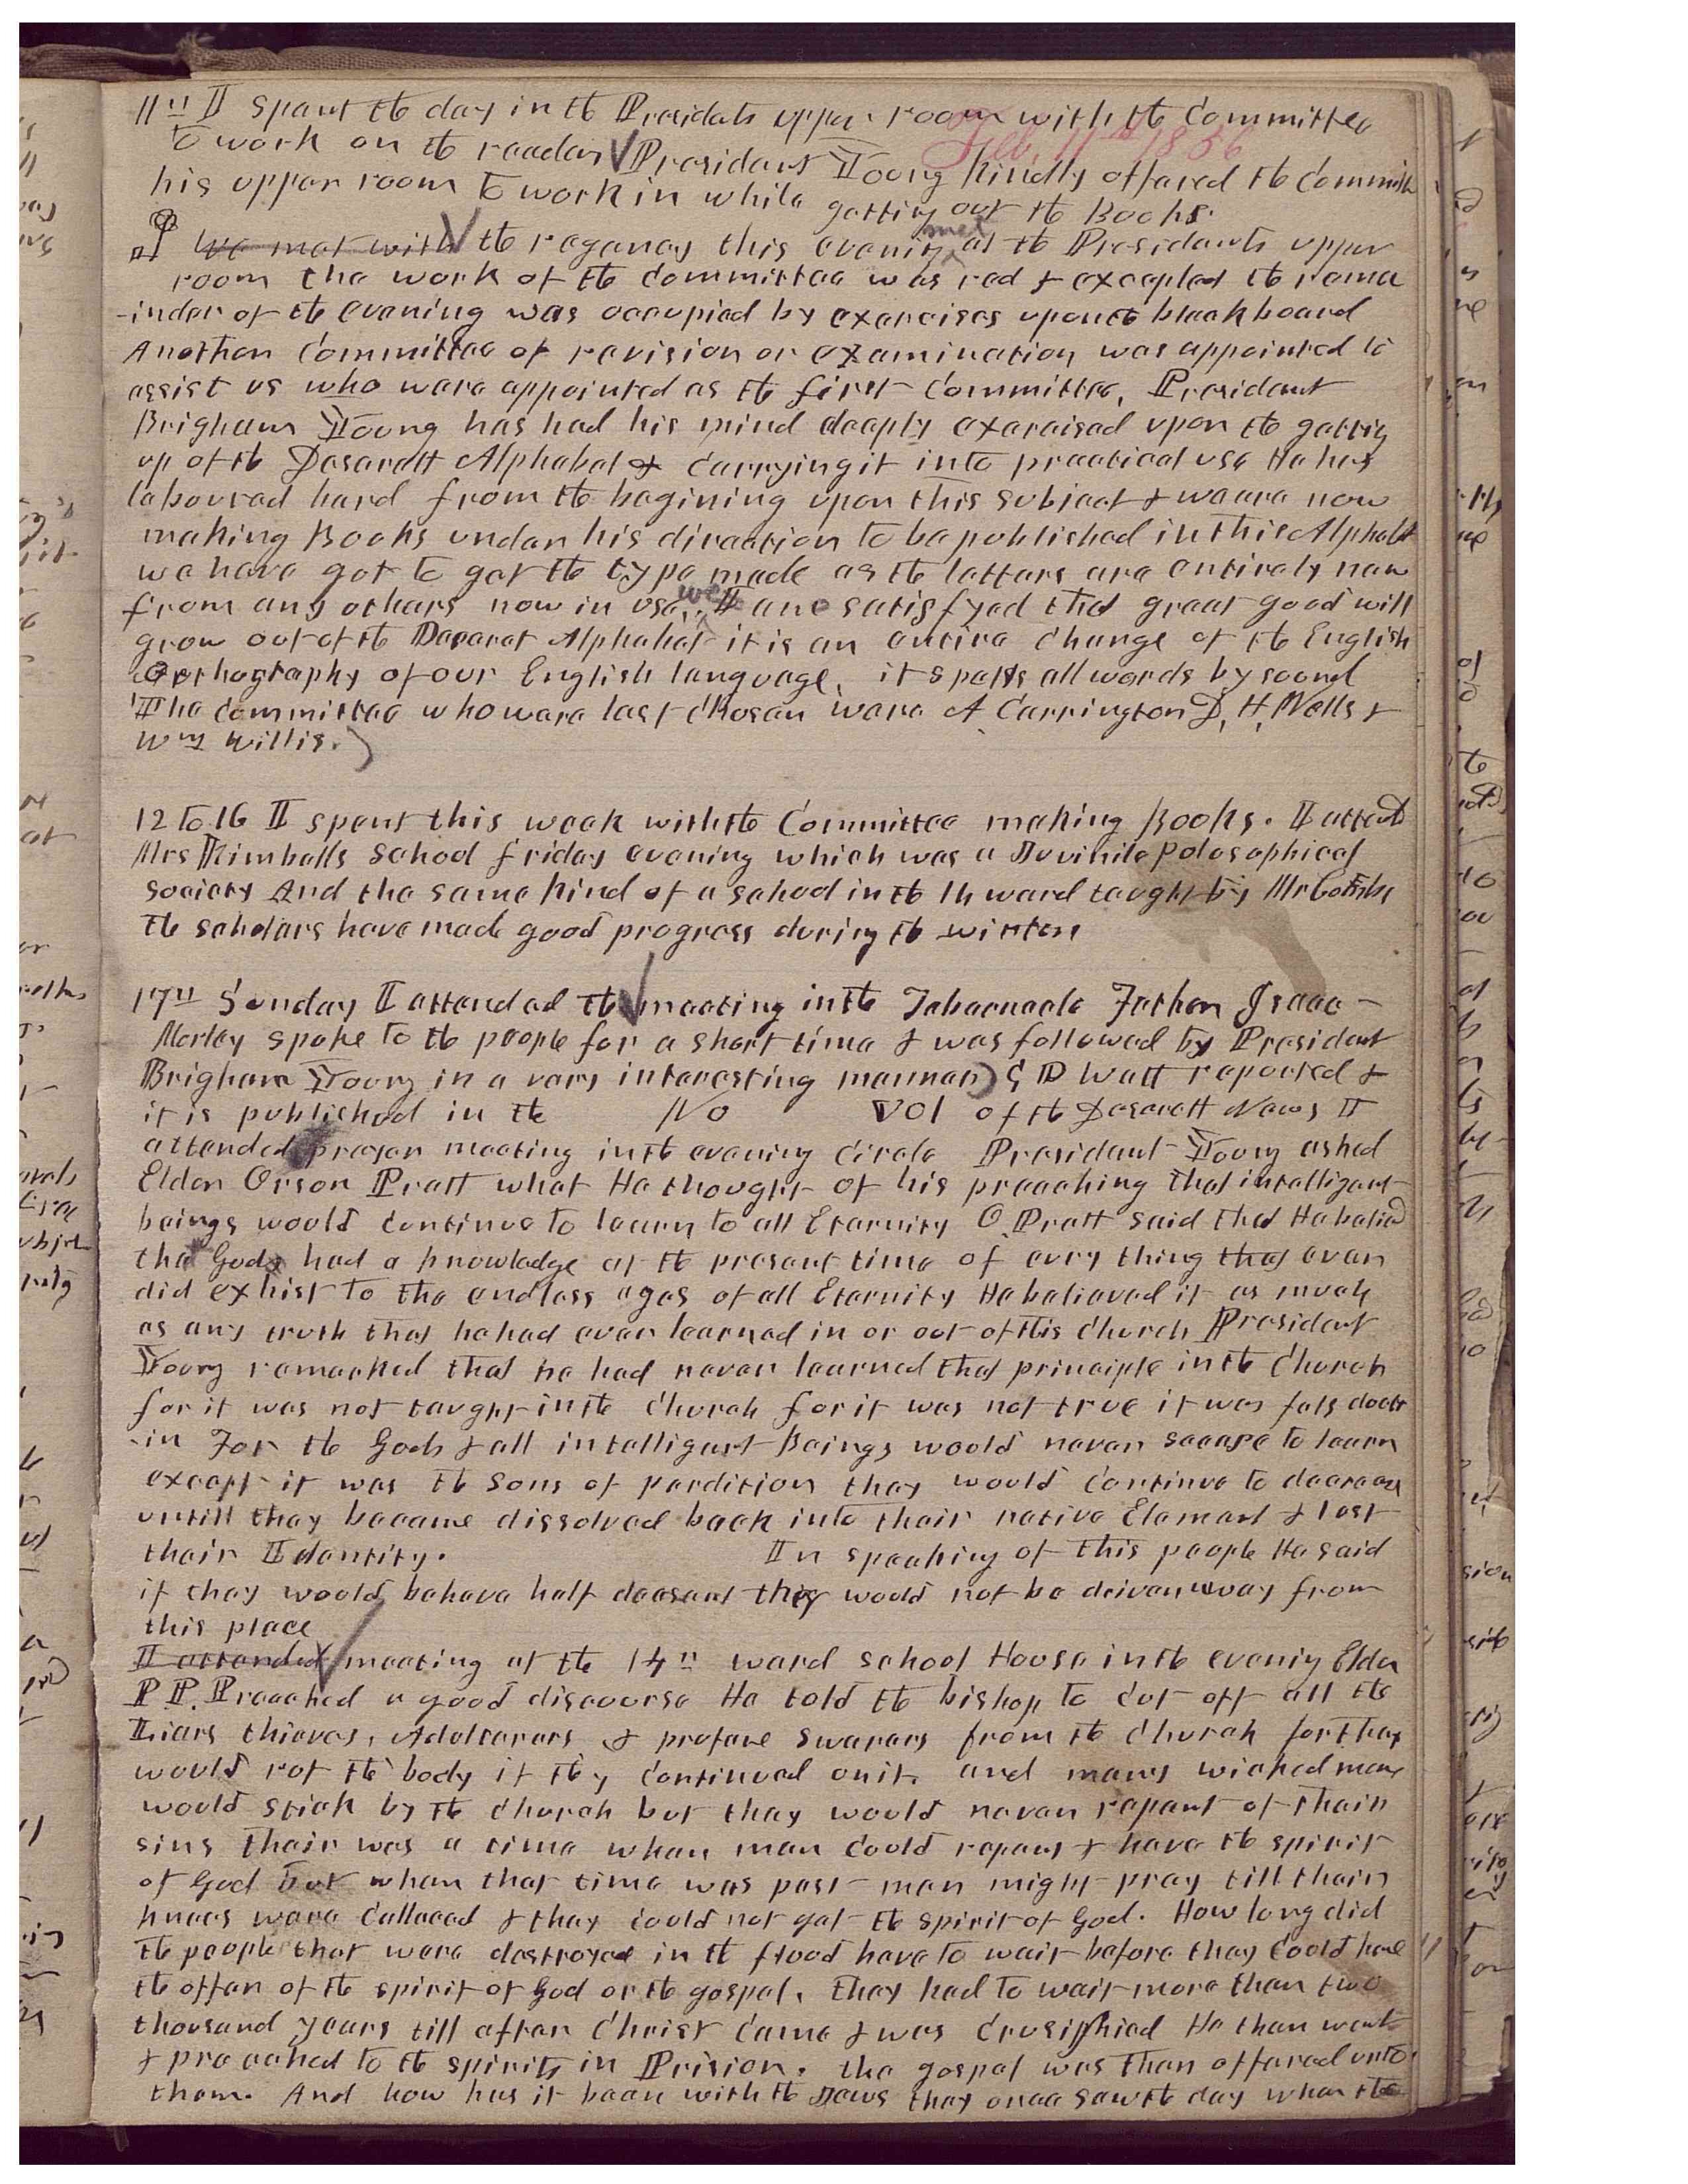 11th I spent the day in the Presidets upper room with the Committee
Feb. 11th 1856
to work on the reader President Young kindly offered the Committe
his upper room to work in while getting out the Books.
We met with the regency this evening met at the Presidents upper
room the work of the committee was red & excepted the rema
-inder of the evening was occupied by exercises upon the black board
Another Committee of revision or examination was appointed to
assist us who were appointed as the first Committee, President
Brigham Young has had his mind deeply exercised upon the getting
up of the Deserett Alphabet & Carrying it into practical use He has
laboured hard from the begining upon this subject & we are now
making Books under his direction to be published in this Alphabet
we have got to get the type made as the letters are entirely new
from any others now in use, we I are satisfyed that great good will
grow out of the Deseret Alphabet it is an entire change of the English
Orthography of our English language, it spells all words by sound
The committee who were last Chosen were A Carrington D, H, Wells &
Wm Willis.)
12 to 16 I spent this week with the Committee making Books. I attend
Mrs Kimballs School friday evening which was a Juvinile polosophical
society And the same kind of a school in the 14 ward taught by Mr
the scholars have made good progress during the winter
17th Sunday I attended the meeting in the Tabernacle Father Isaac
Morley spoke to the people for a short time & was followed by President
Brigham Young in a very interesting manner) G D Watt reported &
it is published in the No Vol of the Deserett News I
attended prayer meeting in the evening Circle President Young asked
Elder Orson Pratt what He thought of his preaching that intelligent
beings would continue to learn to all Eternity O. Pratt said that He believd
the Gods had a knowledge at the present time of evry thing that ever
did exhist to the endless ages of all Eternity He believed it as much
as any truth that he had ever learned in or out of this Church President
Young remarked that he had never learned that principle in the Church
for it was not taught in the Church for it was not true it was fals doctr
-in For the Gods & all intelligent Beings would never scease to learn
except it was the Sons of perdition they would continue to decrease
untill they became dissolved back into their native Element & lost
their Identity. In speaking of this people He said
if they would behave half decent they would not be driven away from
this place
I attended meeting at the 14th ward school House in the evening Elder
P P. Preached a good discourse He told the bishop to Cut off all the
Liars thieves, Adulterers & profane swarers from the Church for they
would rot the body if they continued on it. and many wicked men
would stick by the Church but they would never repent of their
sins their was a time when men Could repent & have the spirit
of God but when that time was past men might pray till their
knees were Calloced & they could not get the spirit of God. How long did
the people that were destroyed in the flood have to wait before they Could have
the offer of the spirit of God or the gospel, they had to wait more than two
thousand years till after Christ Came & was Crusiphied He than went
& preached to the spirits in Prision. the gospel was than offered unto
them. And how has it been with the Jews they once saw the day when the